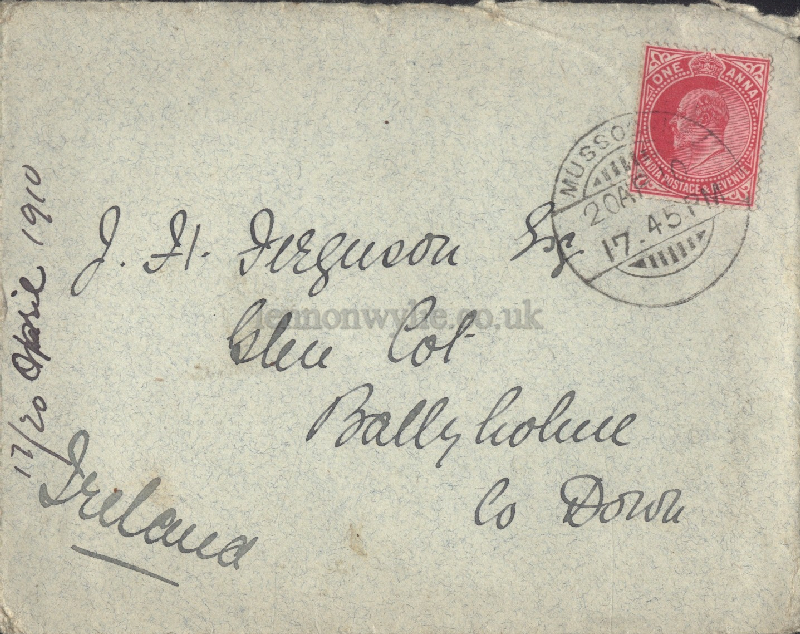 ONE ANNA
INDIA POSTAGE & REVENUE
MUSSO
20AP
17.45PM
J. H. Ferguson Esq
Glen Cot
Ballyholme
Co Down
Ireland
17/20 April 1910
lennonwylie.co.uk